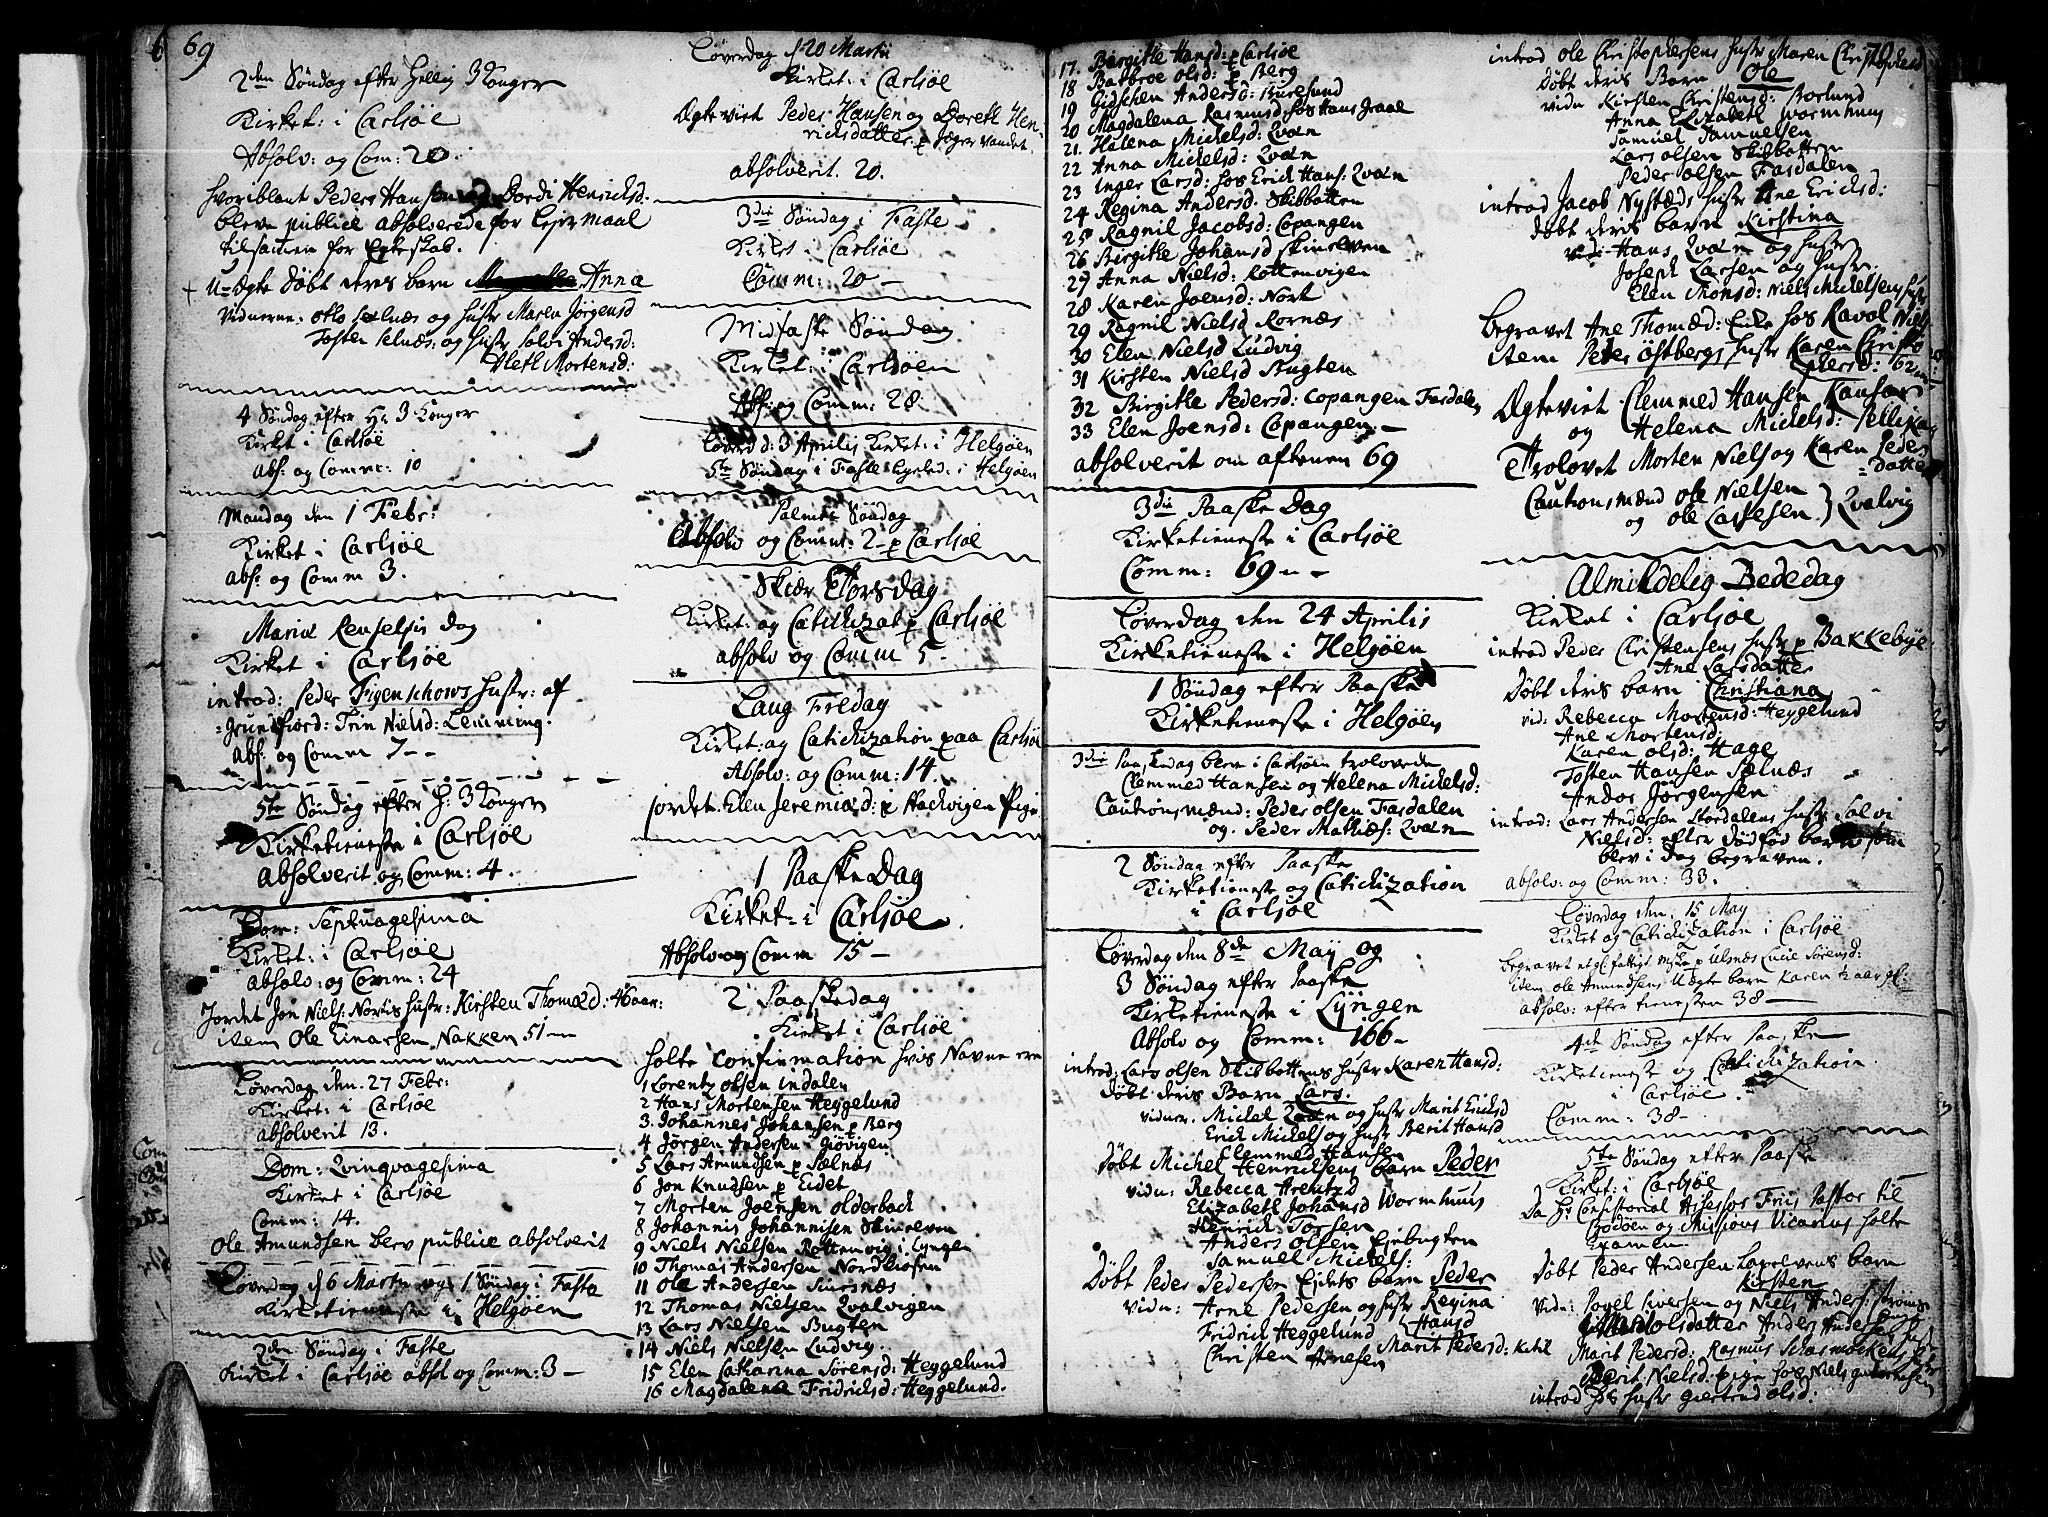 69
2den Søndag efter Hellig 3 Konger
Kirket: i Carlsøe
Absolv: og Com: 20.
hvoriblant Peder Hansen og Dordi Henricksd.
bleve publice absolverede for Lejermaal
tilsamen for Egteskab.
U-Egte døbt deris barn Anna
Vidnerne: Otto Selnæs og hustr Maren Jørgensd
Josten Selnæs og hustr Solvi Andersd:
Aleth Mortensd:
4 Søndag efter H: 3 Konger
Kirket i Carlsøe
Abs: og Comm: 10
Mandag den 1 Febr:
Kirket i Carlsøe
abs: og Comm 3.
Mariæ Renselsis dag
Kirket i Carlsøe
introd: Peder Figenschows hustr: af
Grundfiord: Trin Nielsd: Lemming.
Abs: og Comm 7 - -
5te Søndag efter H: 3 Konger
Kirketieneste i Carlsøe
Absolverit og Comm: 4.
Dom: Septuagesima
Kirket: i Carlsøe
absolv: og Comm: 24
Jordet Jon Niels: Norts hustr: Kirsten Thomæd: 46 aar:
item Ole Einarsen Nakken 51 -
Løverdag den 27 Febr:
Kirket: i Carlsøe
absolverit 13.
Dom: Qvinqvagesima
Kirket i Carlsøe
Comm: 14.
Ole Amundsen blev publice absolverit
Løverdag d 6 Martii og 1 Søndag i Faste
Kirketieneste i Helgøen
2den Søndag i Faste
Kirket i Carlsøe absol og Comm: 3 -
Løverdag d 20 Martii
Kirket: i Carlsøe
Ægteviet Peder Hansen og Doreth Hen-
ricksdatter p Jægervandet.
absolverit. 20.
3die Søndag i Faste
Kirket i Carlsøe
Comm: 20 -
Midfaste Søndag
Kirket: i Carlsøen
Abs: og Comm: 28.
Løverd: 3 Aprilis Kirket: i Helgøen
5te Søndag i Faste ligeled: i Helgøen
Palme Søndag
Absolv og Comm: 2 - p Carlsøe
Skiær Torsdag
Kirket: og Catichizat p Carlsøe
absolv og Comm 5.
Lang Fredag
Kirket: og Catichization paa Carlsøe
Absolv: og Comm: 14.
jordet: Elen Jeremiæd: p Hackvigen Pige
1 Paaske Dag
Kirket: i Carlsøe.
Absolv og Comm 15 -
2 Paaskedag
Kirket i Carlsøe
holte Confirmation hvis Navne ere
1 Lorentz Olsen Indalen
2 Hans Mortensen Heggelund
3. Johannes Johansen p Berg
4 Jørgen Andersen Giøvigen
5 Lars Amundsen p Sælnæs
6 Jon Knudsen p Eidet
7 Morten Joensen Olderback
8 Johannis Johannisen Skinelven
9 Niels Nielsen Rottenvig i Lyngen
10 Thomas Andersen Nordkiosen
11 Ole Andersen Siursnæs
12 Thomas Nielsen Qvalvigen
13 Lars Nielsen Bugten
14 Niels Nielsen Ludvig.
15 Elen Catharina Sørensd: Heggelund
16 Magdalena Fridricksd: Heggelund.
17. Birgitte Hansd: p Carlsøe
18 Barbroe Olsd: p Berg
19 Gidschen Andersd: Buresund
20 Magdalena Rasmusd hos Hans Graae
21. Helena Mickelsd: Qvæn
22 Anna Mickelsd: Qvæn
23 Inger Larsd: hos Erick Hans: Qvæn
24 Regina Andersd: Skibotten
25 Ragnil Jacobsd: Copangen
26 Birgitte Johansd Skinelven
27 Anna Nielsd: Rottenvigen
28 Karen Joensd: Nort
29 Ragnil Nielsd Rornæs
30 Elen Nielsd Ludvig
31 Kirsten Nielsd Bugten
32 Birgitte Pedersd: Copangen Fasdalen
33 Elen Joensd: Copangen. -
absolverit om aftenen 69
3die Paaske Dag
Kirketieneste i Carlsøe
Comm: 69 - -
Løverdag den 24 Aprilis
Kirketieneste i Helgøen
1 Søndag efter Paaske
Kirketieneste i Helgøen
3die Paaskedag blev i Carlsøen trolovede
Clemmed Hansen og Helena Mickelsd:
Cautionsmænd: Peder Olsen Fasdalen
og Peder Mathiæs: Qvæn
2 Søndag efter Paaske
Kirketieneste og Catichization
i Carlsøe
Løverdag den 8de May og
3 Søndag efter Paaske
Kirketieneste i Lyngen
Absolv og Comm: 166 -
introd: Lars Olsen Skibbottens hustr Karen Hansd:
Døbt deris Barn Lars.
vidner. Michel Qvæn og hustr Marit Ericksd
Erick Mickels og hustr Berit Hansd
Clemmed Hansen
Døbt Michel Henricksens barn Peder
vidn: Rebecca Arentzd
Elizabeth Johansd Wormhuus
Henrick Torsen
Anders Olsen Eiebugten
Samuel Mickels:
Døbt Peder Pedersen Ejdets barn Peder
Vidn: Arne Pedersen og hustr Regina
Hansd
Fridrich Heggelund
Marit Pedersd: Ketil
Christen Arnesen
70
introd Ole Christophersens hustr Maren Christophersd
Døbt deris Barn Ole
vidn Kirsten Christensd: Borlund
Anna Elizabeth Wormhuus
Samuel Samuelsen
Lars Olsen Skibbotten
Peder Olsen Fasdalen
introd Jacob Nystæds hustr Ane Ericksd:
døbt deris barn Kirstina
vid: Hans Qvæn og hustr
Joseph Larsen og hustr
Elen Monsd: Niels Mickelsens hustr
Begravet Ane Thomæd: Enke hos Ravol Niels
item Peder Østbergs hustr Karen Christo
phersd: 62
Ægteviet Clemmed Hansen
og Helena Mickelsd:
Trolovet Morten Niels og Karen Peders
datter
Cautionsmænd Ole Nielsen
og Ole Lassesen } Qvalvig
Almildelig Bededag
Kirket i Carlsøe
introd Peder Christensens hustr p Bakkebye
Ane Larsdatter
Døbt deris barn Christiana
vid: Rebecca Mortensd: Heggelund
Ane Mortensd:
Karen Olsd: Hage
Josten Hansen Sælnæs
Andor Jørgensen
introd: Lars Andersen Stordalens hustr Solvi
Nielsd: efter dødfød barn som
blev i dag begraven.
absolv: og Comm: 33.
Løverdag den. 15 May
Kirket og Catichization i Carlsøe
item Ole Amundsens Uægte barn Karen ½ aar gl:
absolv: efter tienesten 38 -
4de Søndag efter Paaske
Kirketieneste og Catichization
i Carlsøe.
Comm: 38 -
5te Søndag efter Paaske
Kirket: i Carlsøe
Da Hr: Consistorial Assessor Friis Pastor til
Bodøen og Missions Vicarius holte
Examen
Døbt Peder Andersen Lapelvens barn
Kirsten
Vidn: Povel Siversen og Niels Anders:
Olsdatter Anders Andersens hustr
Marit Pedersd: Rasmus
Berit Nielsd: pige hos Niels
introd hs hustr Giertrud Olsd: